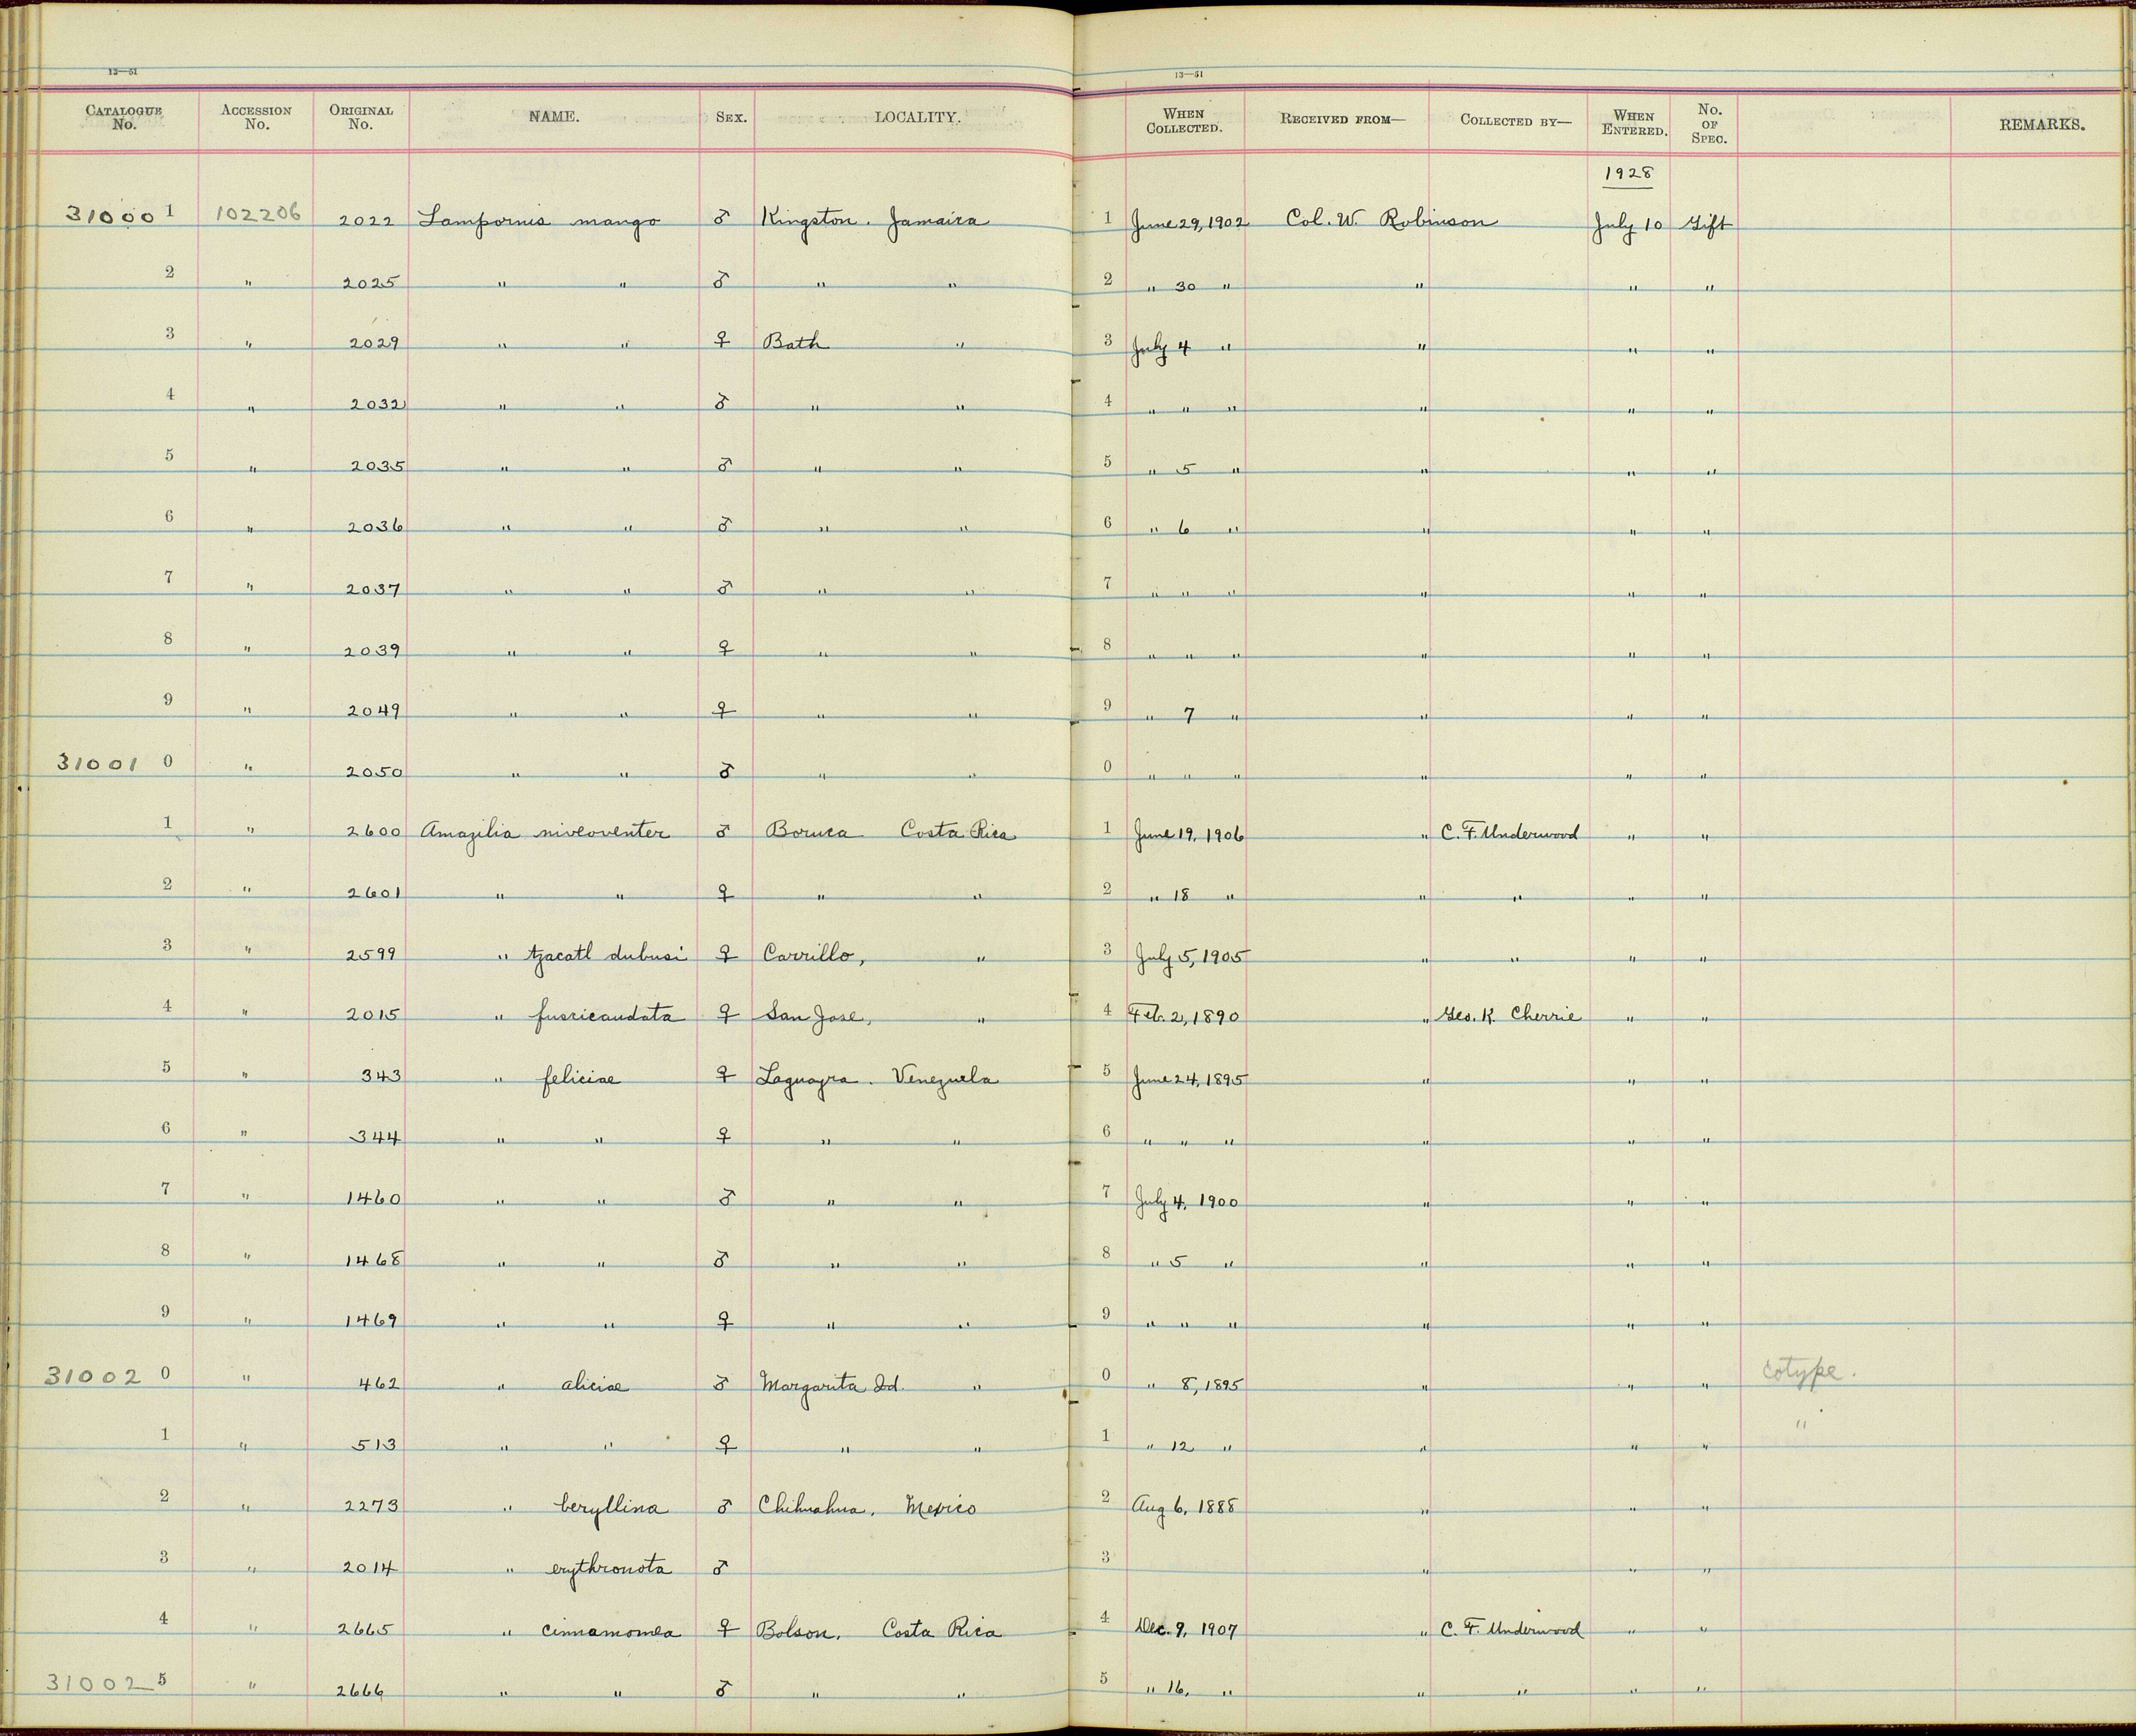 13—51 13—51
CATALOGUE No. ACCESSION No. ORIGINAL No. NAME. SEX. LOCALITY. WHEN COLLECTED. RECEIVED FROM— COLLECTED BY— WHEN ENTERED. No. OF SPEC. REMARKS.
1928
31000 1 102206 2022 Lampornis mango ♂ Kingston. Jamaica 1 June 29, 1902 Col. W. Robinson July 10 Gift
2 " 2025 " " ♂ " " 2 " 30 " " " "
3 " 2029 " " ♀ Bath " 3 July 4 " " " "
4 " 2032 " " ♂ " " 4 " " " " " "
5 " 2035 " " ♂ " " 5 " 5 " " " "
6 " 2036 " " ♂ " " 6 " 6 " " " "
7 " 2037 " " ♂ " " 7 " " " " " "
8 " 2039 " " ♀ " " 8 " " " " " "
9 " 2049 " " ♀ " " 9 " 7 " " " "
31001 0 " 2050 " " ♂ " " 0 " " " " " "
1 " 2600 Amazilia niveoventer ♂ Boruca Costa Rica 1 June 19, 1906 " C. F. Underwood " "
2 " 2601 " " ♀ " " 2 " 18 " " " " "
3 " 2599 " tzacatl dubusi ♀ Carrillo, " 3 July 5, 1905 " " " "
4 " 2015 " fuscicaudata ♀ San Jose, " 4 Feb. 2, 1890 " Geo. K. Cherrie " "
5 " 343 " feliciae ♀ Laguayra. Venezuela 5 June 24, 1895 " " "
6 " 344 " " ♀ " " 6 " " " " " "
7 " 1460 " " ♂ " " 7 July 4, 1900 " " "
8 " 1468 " " ♂ " " 8 " 5 " " " "
9 " 1469 " " ♀ " " 9 " " " " " "
31002 0 " 462 " aliciae ♂ Margarita Id. " 0 " 8, 1895 " " " cotype.
1 " 513 " " ♀ " " 1 " 12 " " " " "
2 " 2273 " beryllina ♂ Chihuahua. Mexico 2 Aug 6, 1888 " " "
3 " 2014 " erythronota ♂ 3 " " "
4 " 2665 " cinnamomea ♀ Bolson. Costa Rica 4 Dec. 9, 1907 " C. F. Underwood " "
31002 5 " 2666 " " ♂ " " 5 " 16, " " " " "